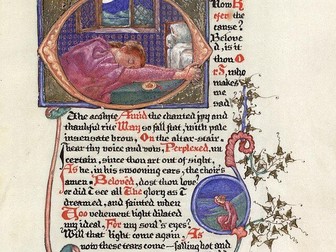 How R
efer the
cause?
Belove
d, is it
thou O
r I, who
makes
me
sad
The acolyte Amid the chanted joy and
thankful rite May so fall flat, with pale
insensate brow, On the altar-stair. I
hear thy voice and vow, Perplexed, un
certain, since thou art out of sight,
As he, in his swooning ears, the choir's
amen? Beloved, dost thou love? or
did I see all The glory as I
dreamed, and fainted when
Too vehement light dilated
my ideal, For my soul's eyes?
Will that light come again, As
now these tears come falling hot and